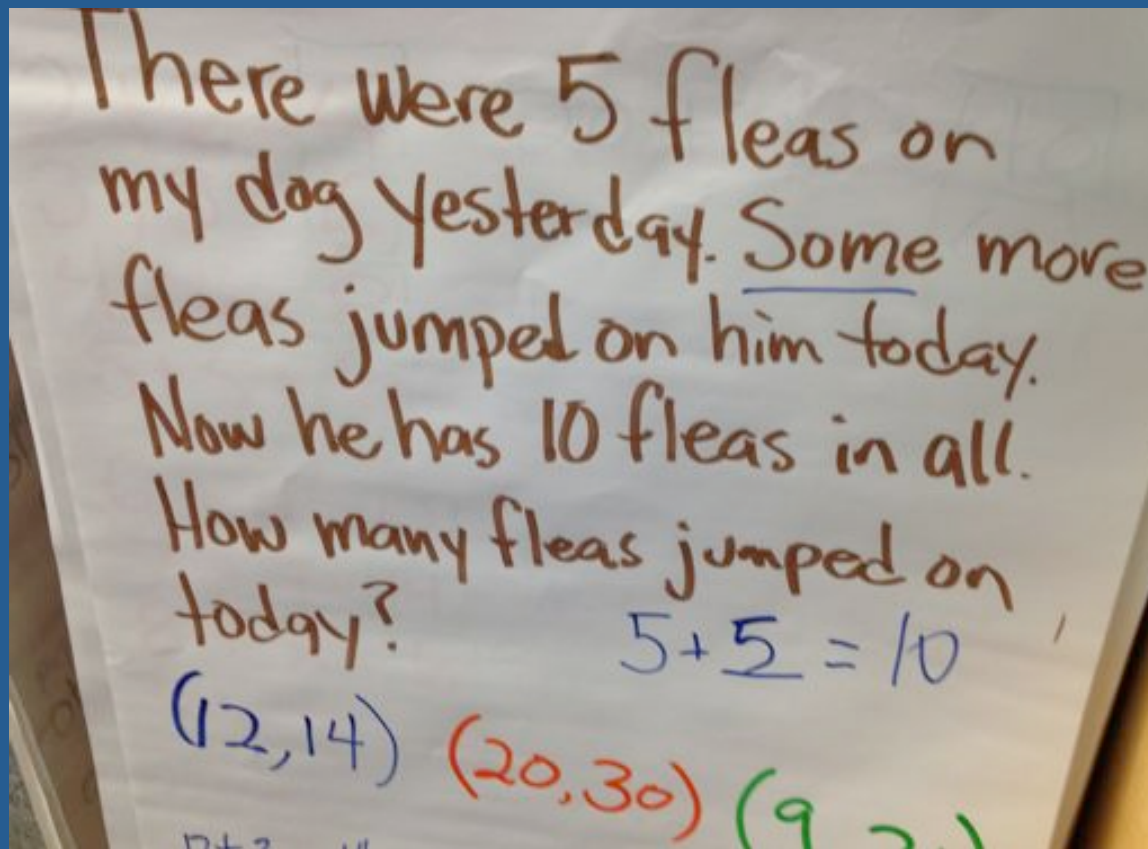 There were 5 fleas on
my dog yesterday. Some more
fleas jumped on him today.
Now he has 10 fleas in all.
How many fleas jumped on
today?
5+5=10
(12,14) (20,30) (9